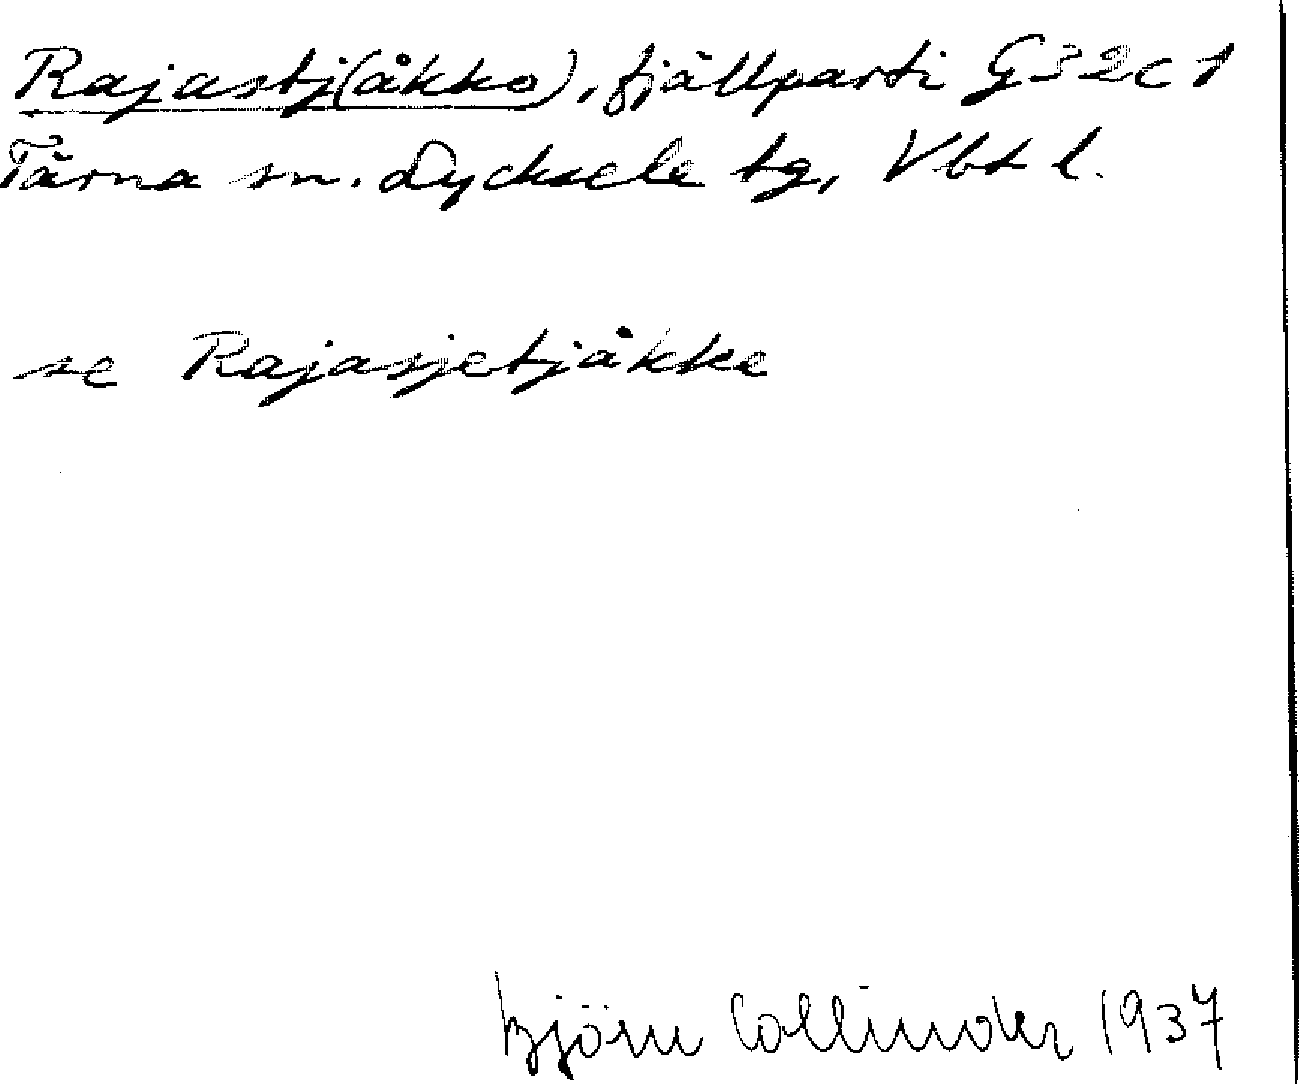 Rajastj(åkko), fjällparti G32c1
Tärna sn. Lycksele tg, Vbt l.
se Rajasjetjåkke
Björn Collinder 1937